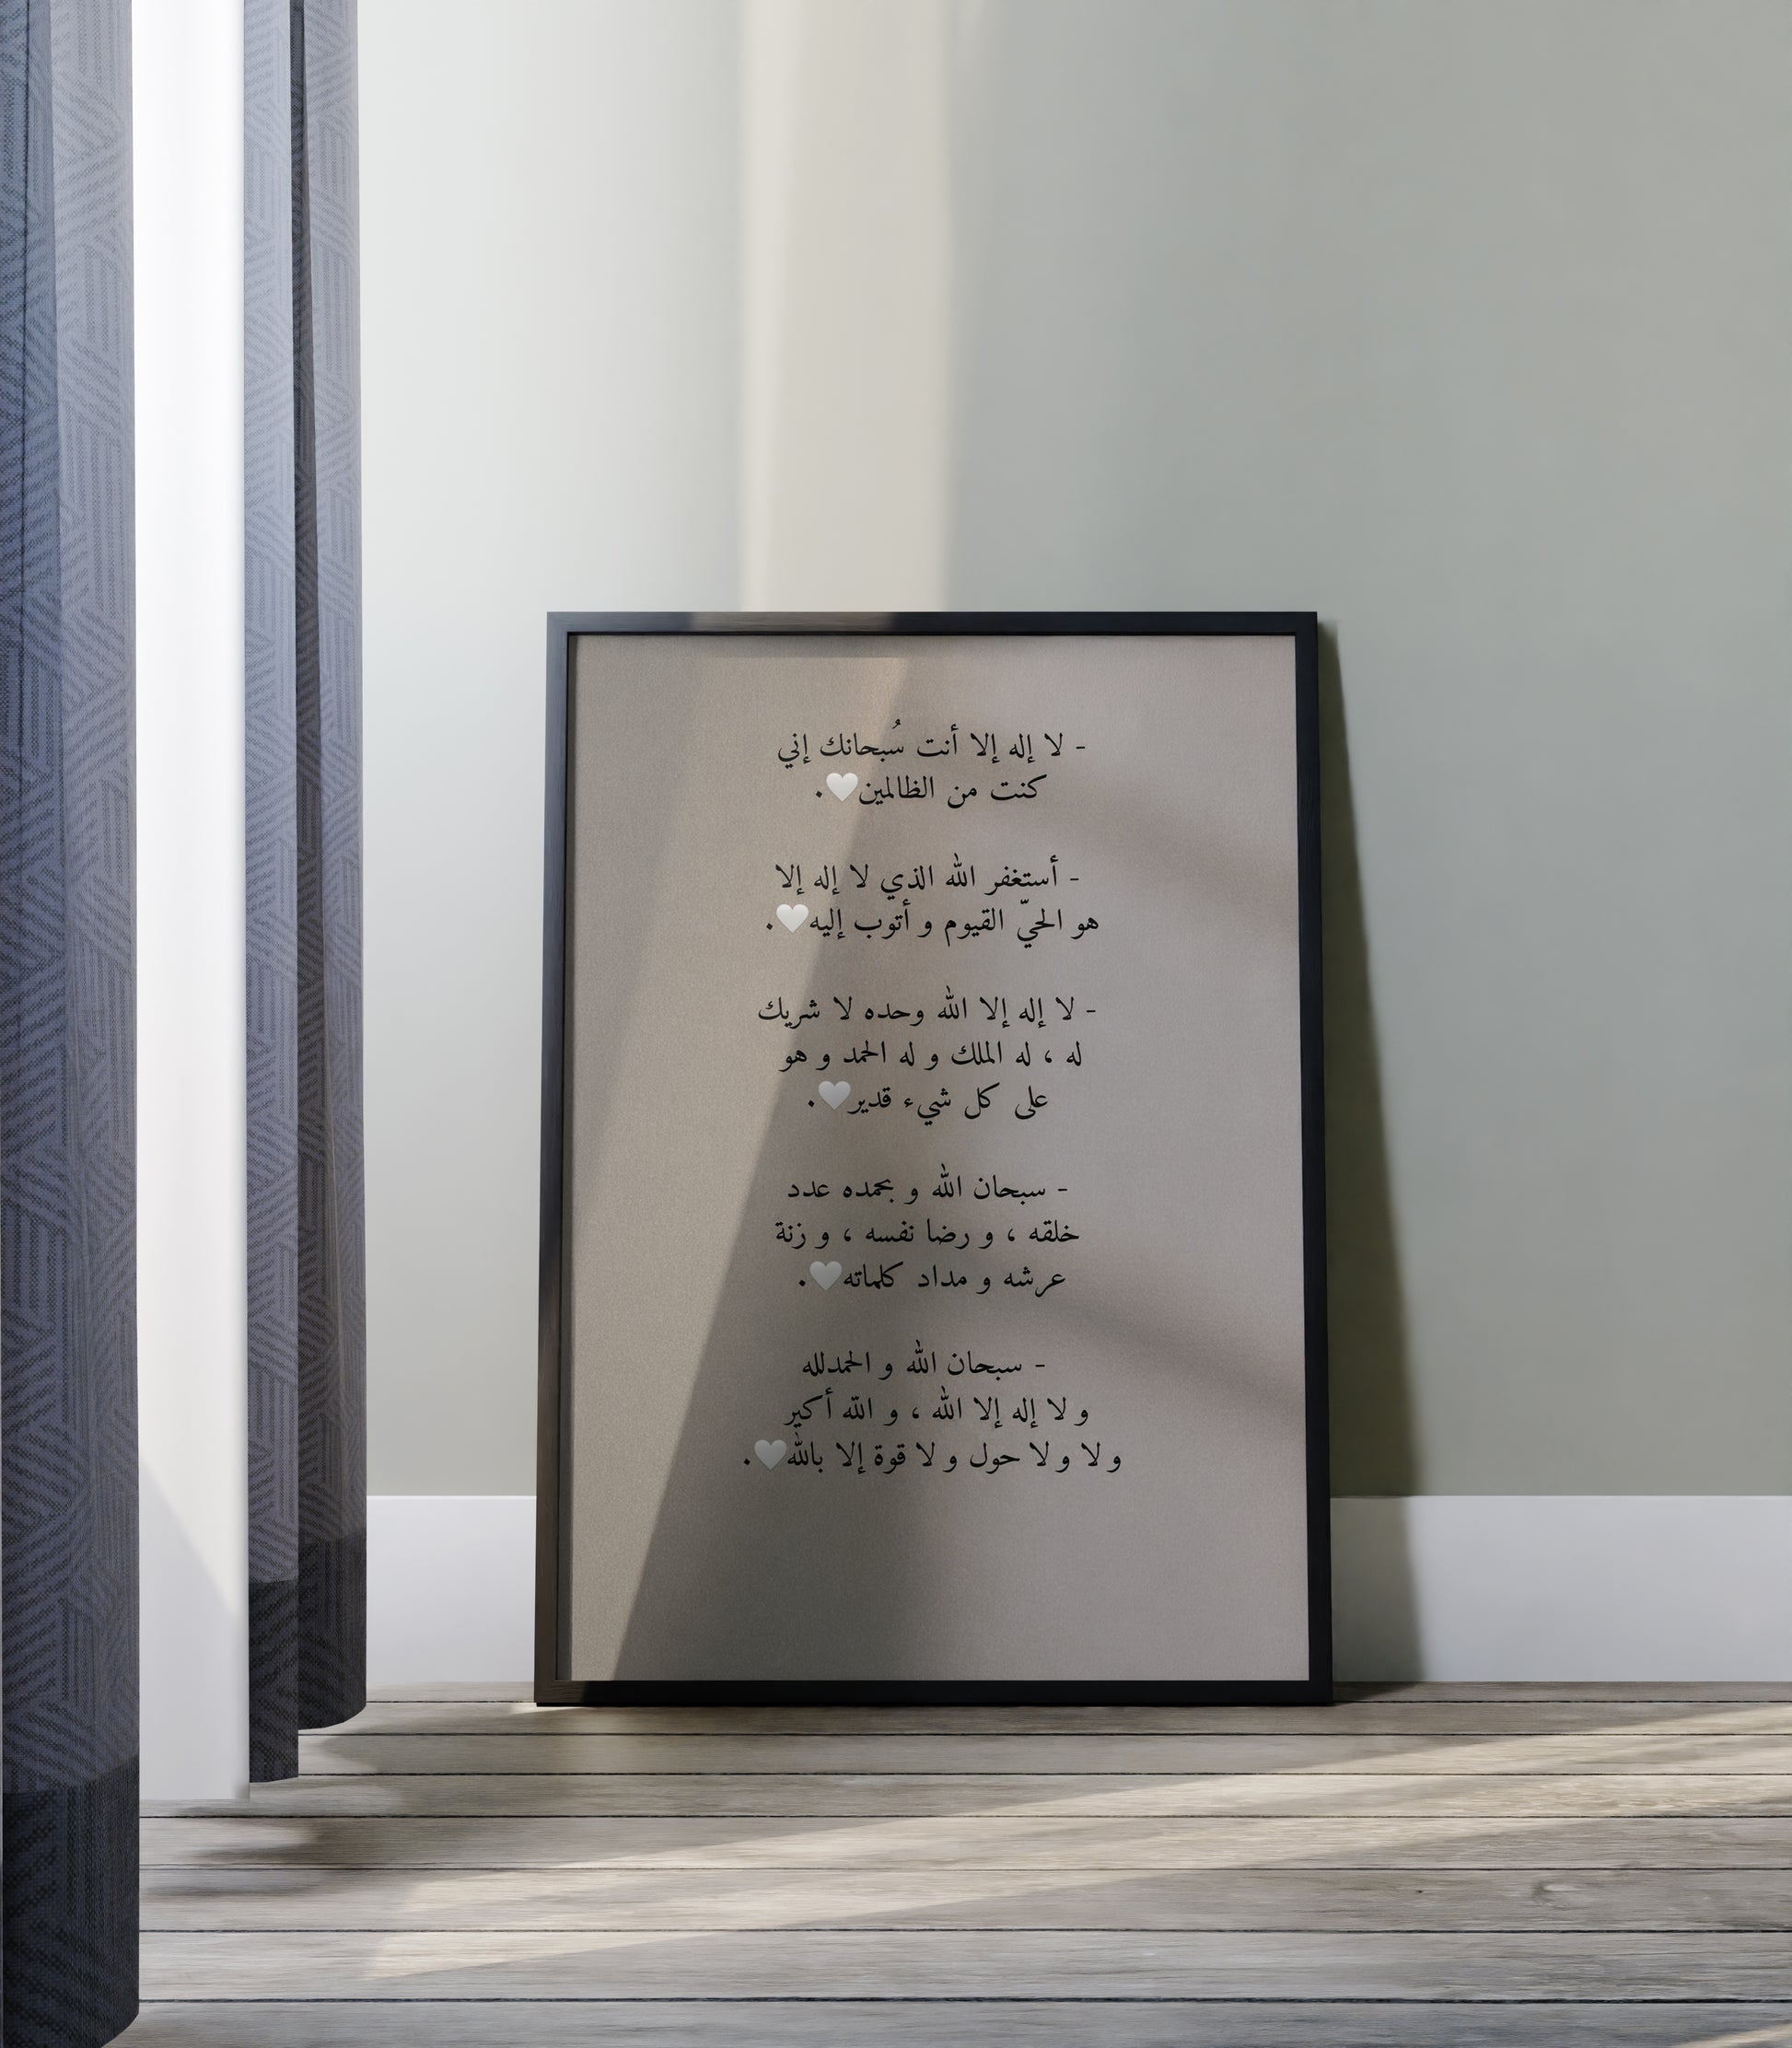 - لا إله إلا أنت سُبحانك إني
كنت من الظالمين🤍.
- أستغفر الله الذي لا إله إلا
هو الحيّ القيوم و أتوب إليه🤍.
- لا إله إلا الله وحده لا شريك
له ، له الملك و له الحمد و هو
على كل شيء قدير🤍.
- سبحان الله و بحمده عدد
خلقه ، و رضا نفسه ، و زنة
عرشه و مداد كلماته🤍.
- سبحان الله و الحمدلله
و لا إله إلا الله ، و الله أكير
و لا و لا حول و لا قوة إلا بالله🤍.